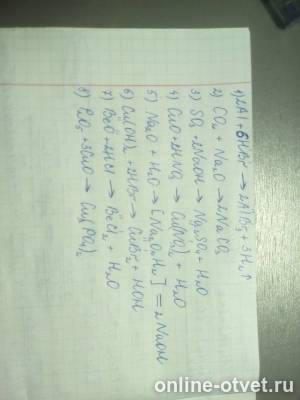 1) 2Al + 6HBr → 2AlBr3 + 3H2↑
2) CO2 + Na2O → Na2CO3
3) SO3 + 2NaOH → Na2SO4 + H2O
4) CuO + 2HNO3 → Cu(NO3)2 + H2O
5) Na2O + H2O → [Na2O2H2] = 2NaOH
6) Cu(OH)2 + 2HBr → CuBr2 + HOH
7) BeO + 2HCl → BeCl2 + H2O
8) P2O5 + 3CuO → Cu3(PO4)2
online-otvet.ru